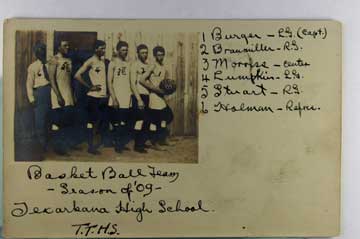 1 Burger - L.G. (Capt.)
2 Branmiller - R.G.
3 Morriss - Center
4 Lumpkin - L.G.
5 Stuart - R.G.
6 Holman - Refree.
Basket Ball Team
- Season of '09 -
Texarkana High School.
T.T.H.S.